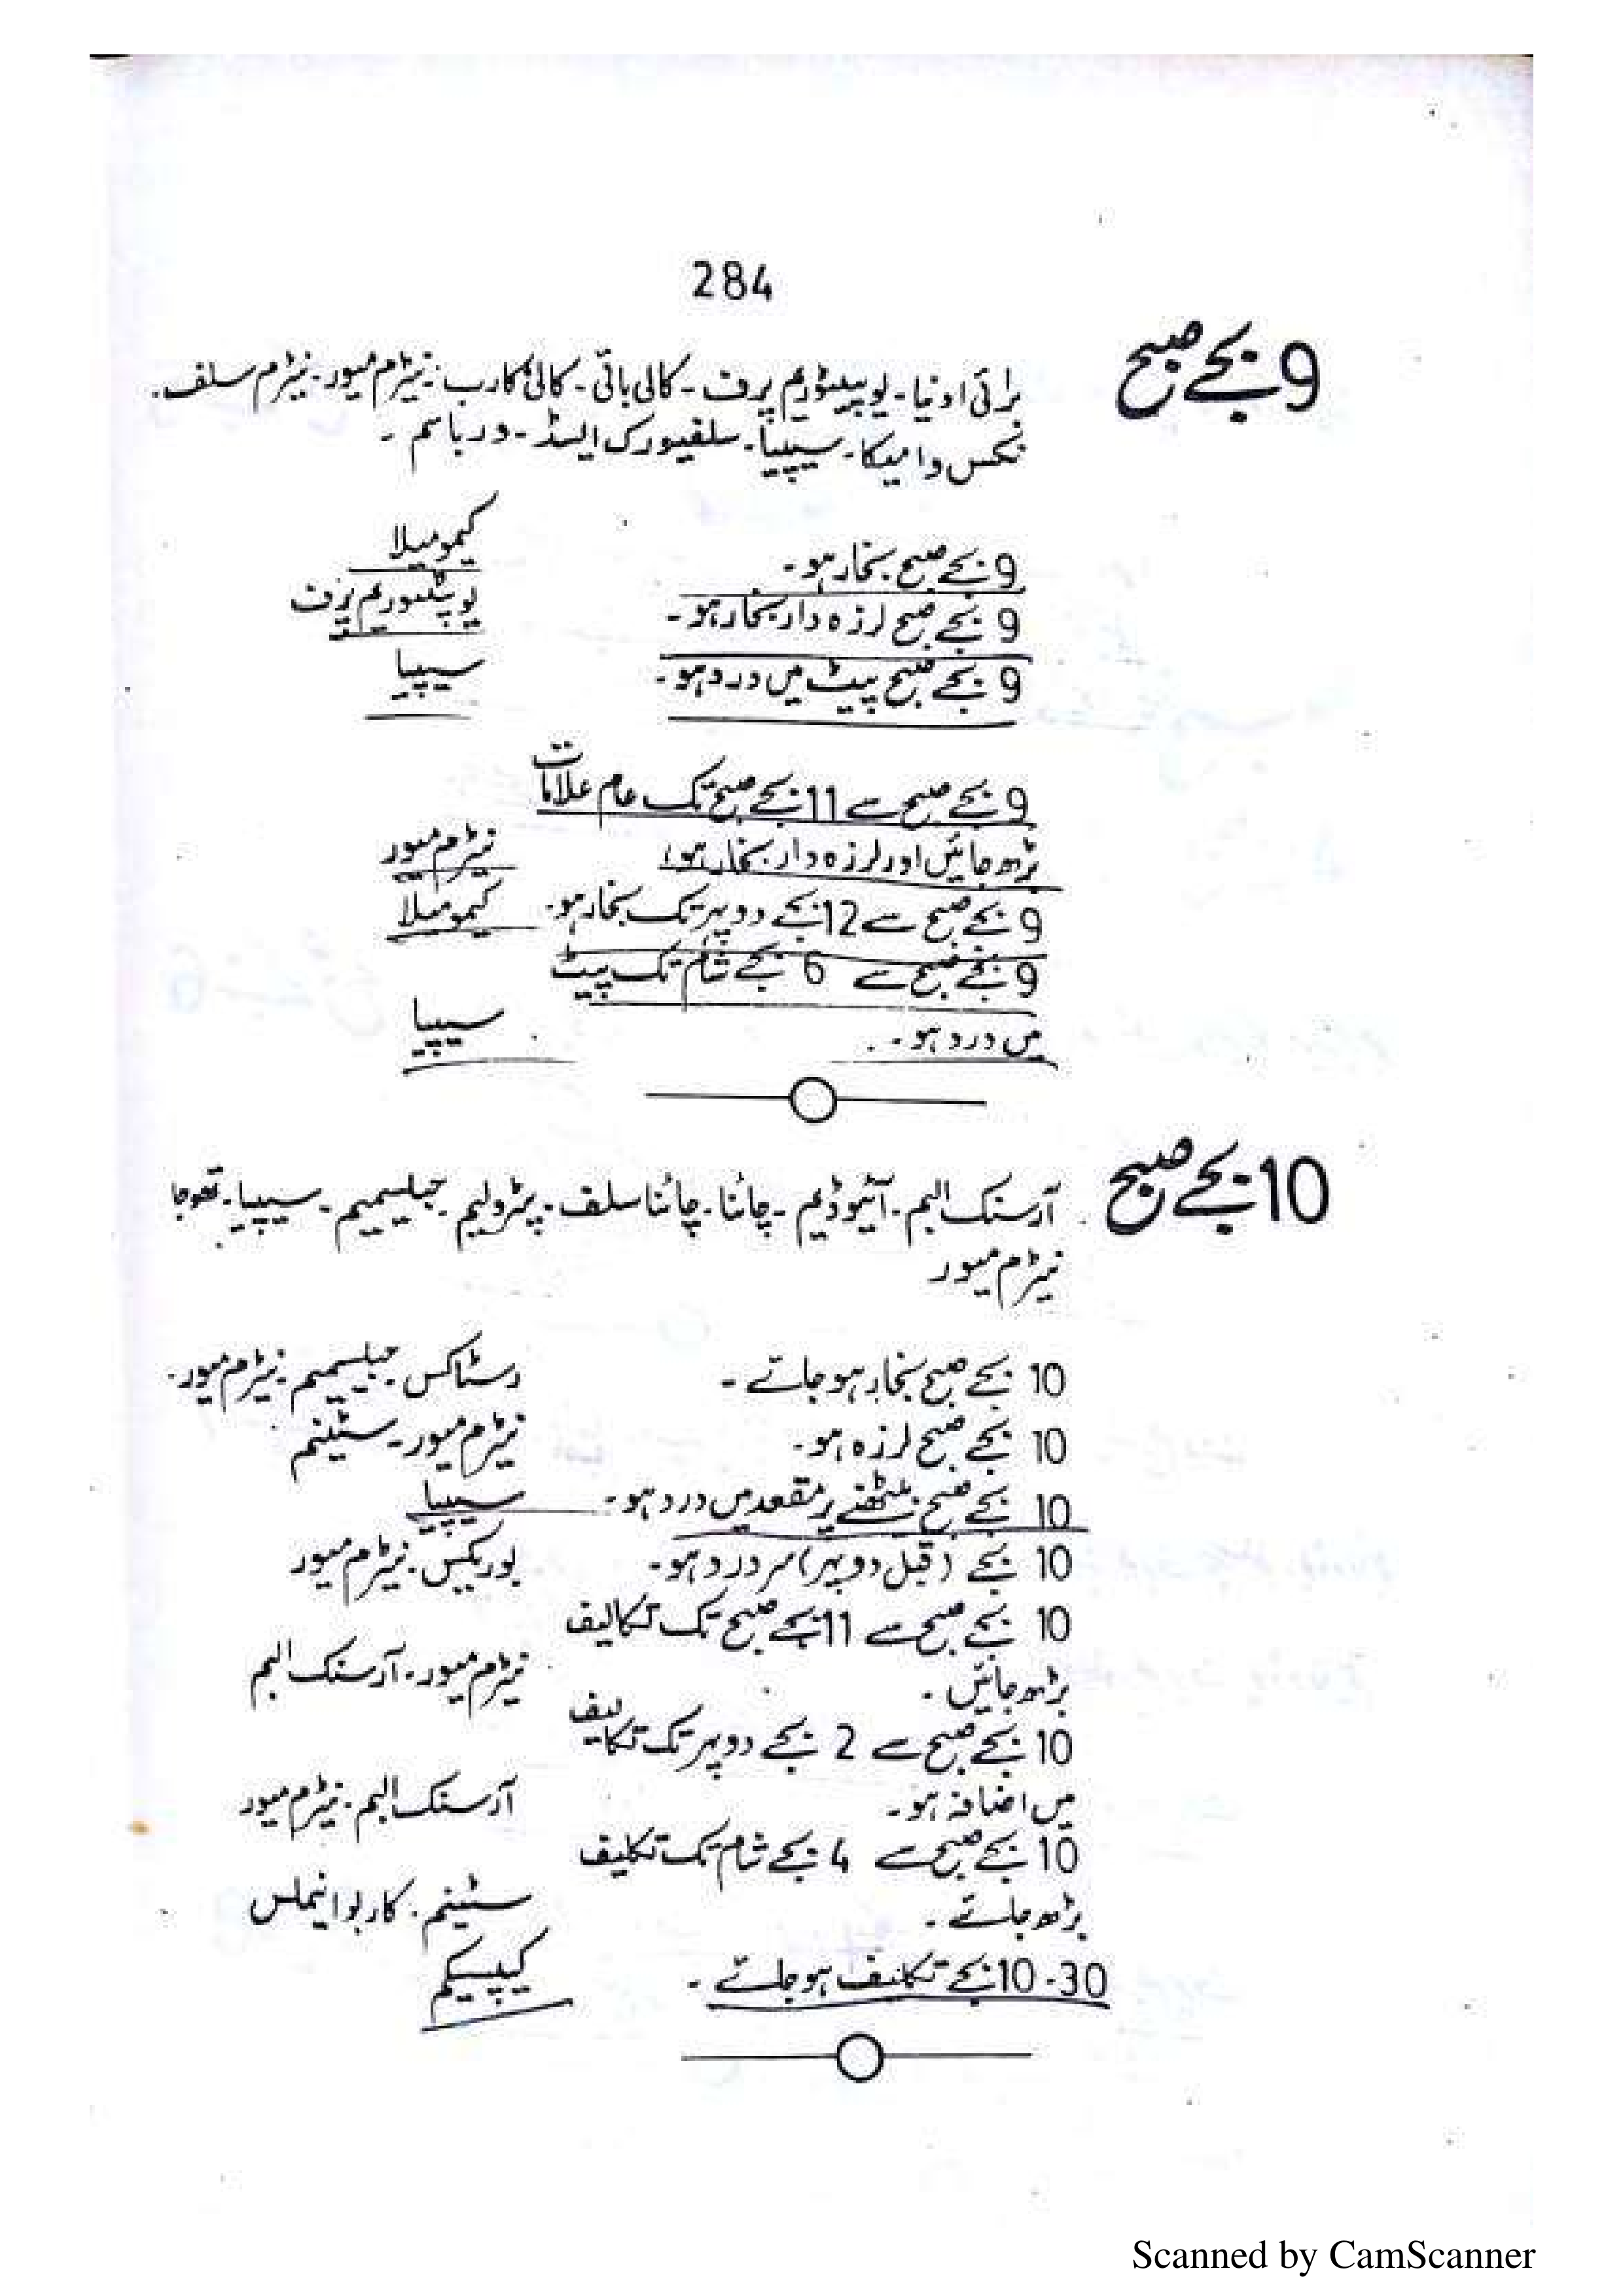 284
9 بجے صبح
برائی اونیا۔ یوپیٹوریم پرف۔ کالی بائی۔ کالی کارب۔ نیٹرم میور۔ نیٹرم سلف۔
نکس وامیکا۔ سیپیا۔ سلفیورک ایسڈ۔ ورباسم۔
9 بجے صبح بخار ہو۔ کیمومیلا
9 بجے صبح لرزہ دار بخار ہو۔ یوپیٹوریم پرف
9 بجے صبح پیٹ میں درد ہو۔ سیپیا
9 بجے صبح سے 11 بجے صبح تک عام علامات
بڑھ جائیں اور لرزہ دار بخار ہو۔ نیٹرم میور
9 بجے صبح سے 12 بجے دوپہر تک بخار ہو۔ کیمومیلا
9 بجے صبح سے 6 بجے شام تک پیٹ
میں درد ہو۔ سیپیا
10 بجے صبح
آرسنک البم۔ آئیوڈیم۔ چائنا۔ چائنا سلف۔ پٹرولیم۔ جیلسیمیم۔ سیپیا۔ تھوجا
نیٹرم میور
10 بجے صبح بخار ہو جائے۔ رسٹاکس۔ جیلسیمیم۔ نیٹرم میور۔
10 بجے صبح لرزہ ہو۔ نیٹرم میور۔ سٹینم
10 بجے صبح بیٹھنے پر مقعد میں درد ہو۔ سیپیا
10 بجے (قبل دوپہر) سر درد ہو۔ بوریکس۔ نیٹرم میور
10 بجے صبح سے 11 بجے صبح تک تکالیف
بڑھ جائیں۔ نیٹرم میور۔ آرسنک البم
10 بجے صبح سے 2 بجے دوپہر تک تکالیف
میں اضافہ ہو۔ آرسنک البم۔ نیٹرم میور
10 بجے صبح سے 4 بجے شام تک تکلیف
بڑھ جائے۔ سٹینم۔ کاربو انیملس
10-30 بجے تکلیف ہو جائے۔ کیپسیکم
Scanned by CamScanner